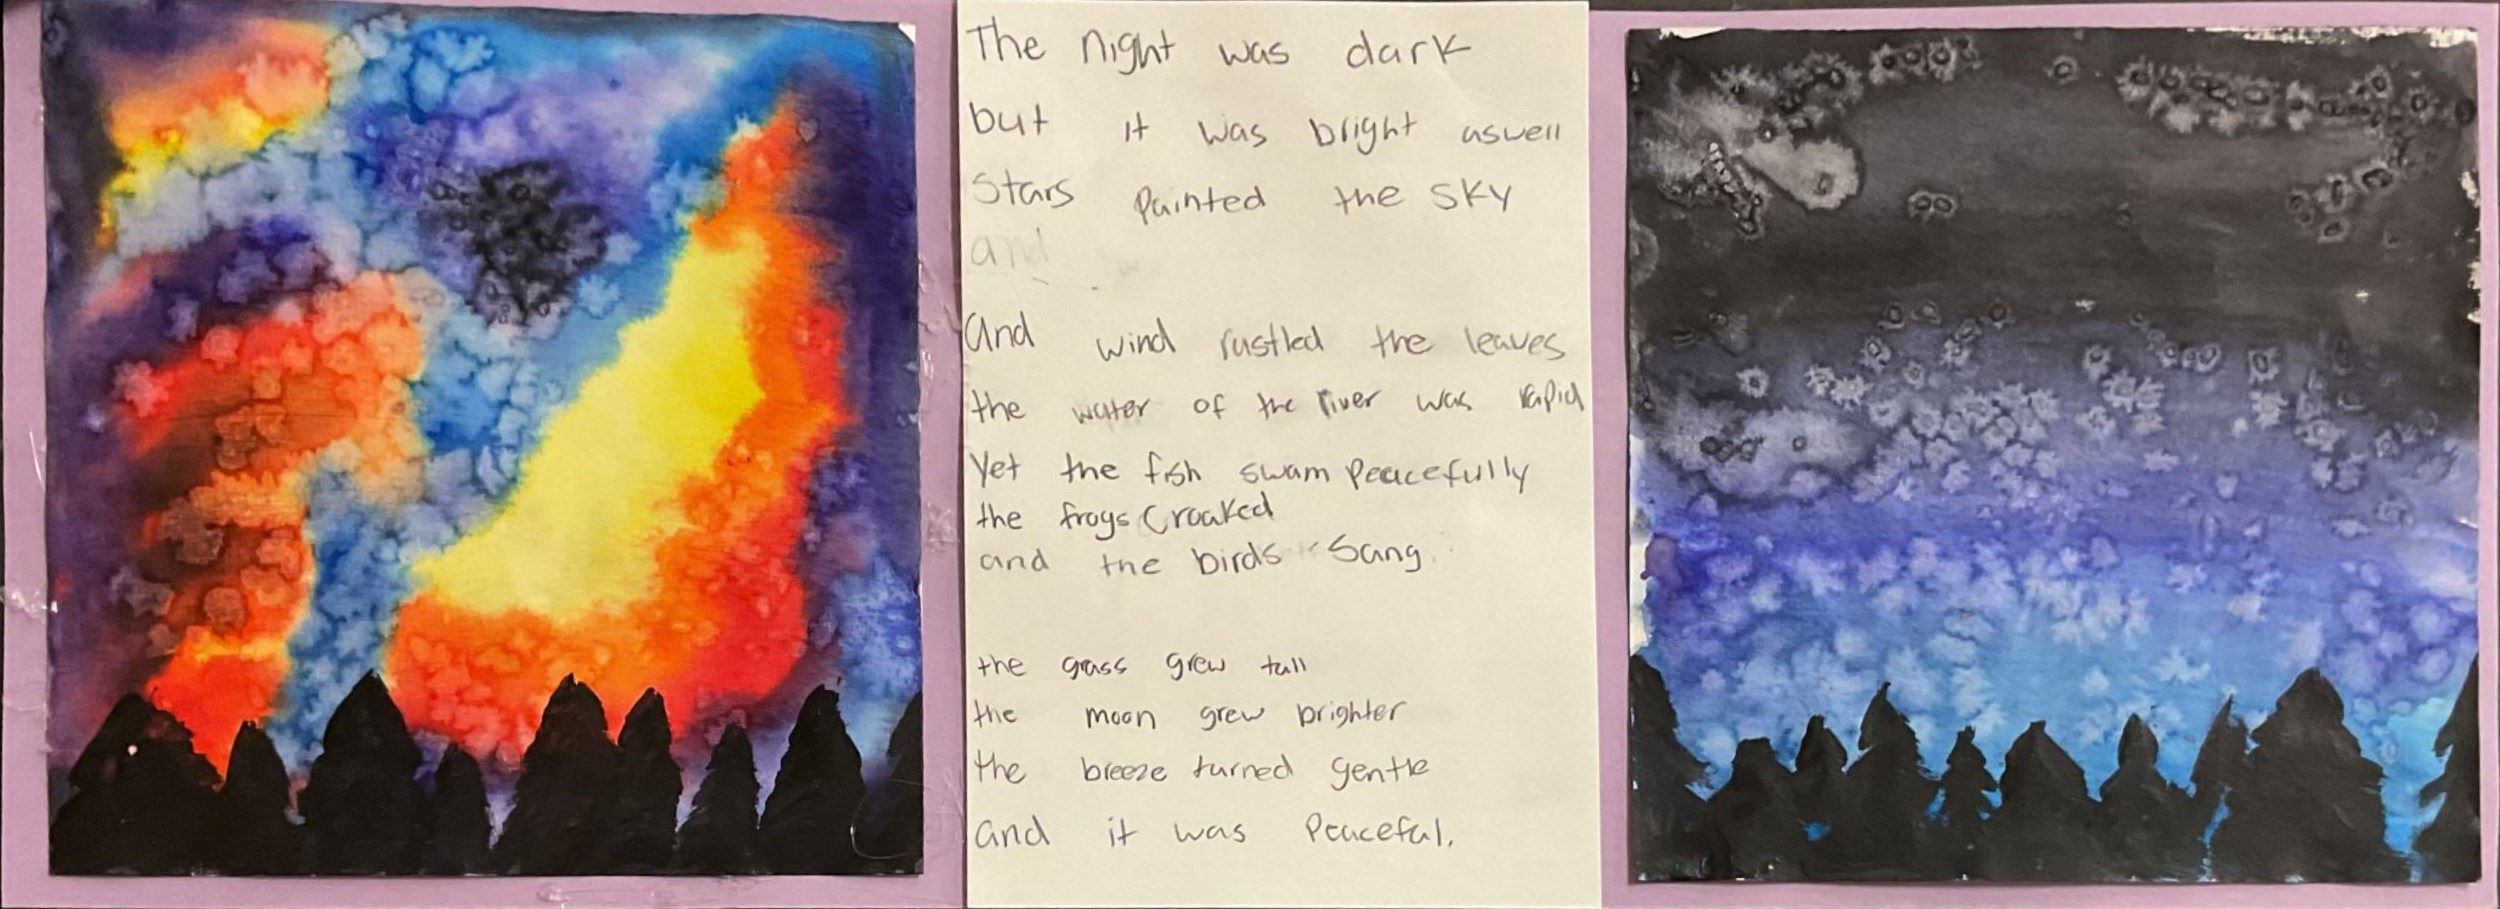 The night was dark
but it was bright aswell
Stars Painted the SKY
and
And wind rustled the leaves
the water of the river was rapid
Yet the fish swam Peacefully
the frogs Croaked
and the birds Sang.
the grass grew tall
the moon grew brighter
the breeze turned gentle
and it was Peaceful.